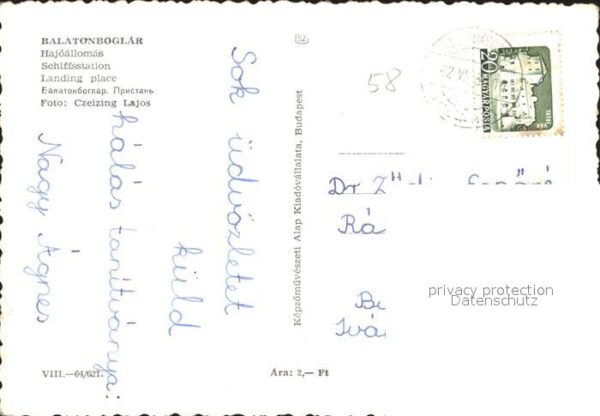 BALATONBOGLÁR
Hajóállomás
Schiffsstation
Landing place
Балатонбоглар. Пристань
Foto: Czeizing Lajos
Sok üdvözletet
küld
hálás tanítványa:
Nagy Ágnes
VIII.—64/621.
Ára: 2,— Ft
Képzőművészeti Alap Kiadóvállalata, Budapest
58
20
MAGYAR POSTA
Dr
Rá
Ivá
privacy protection
Datenschutz